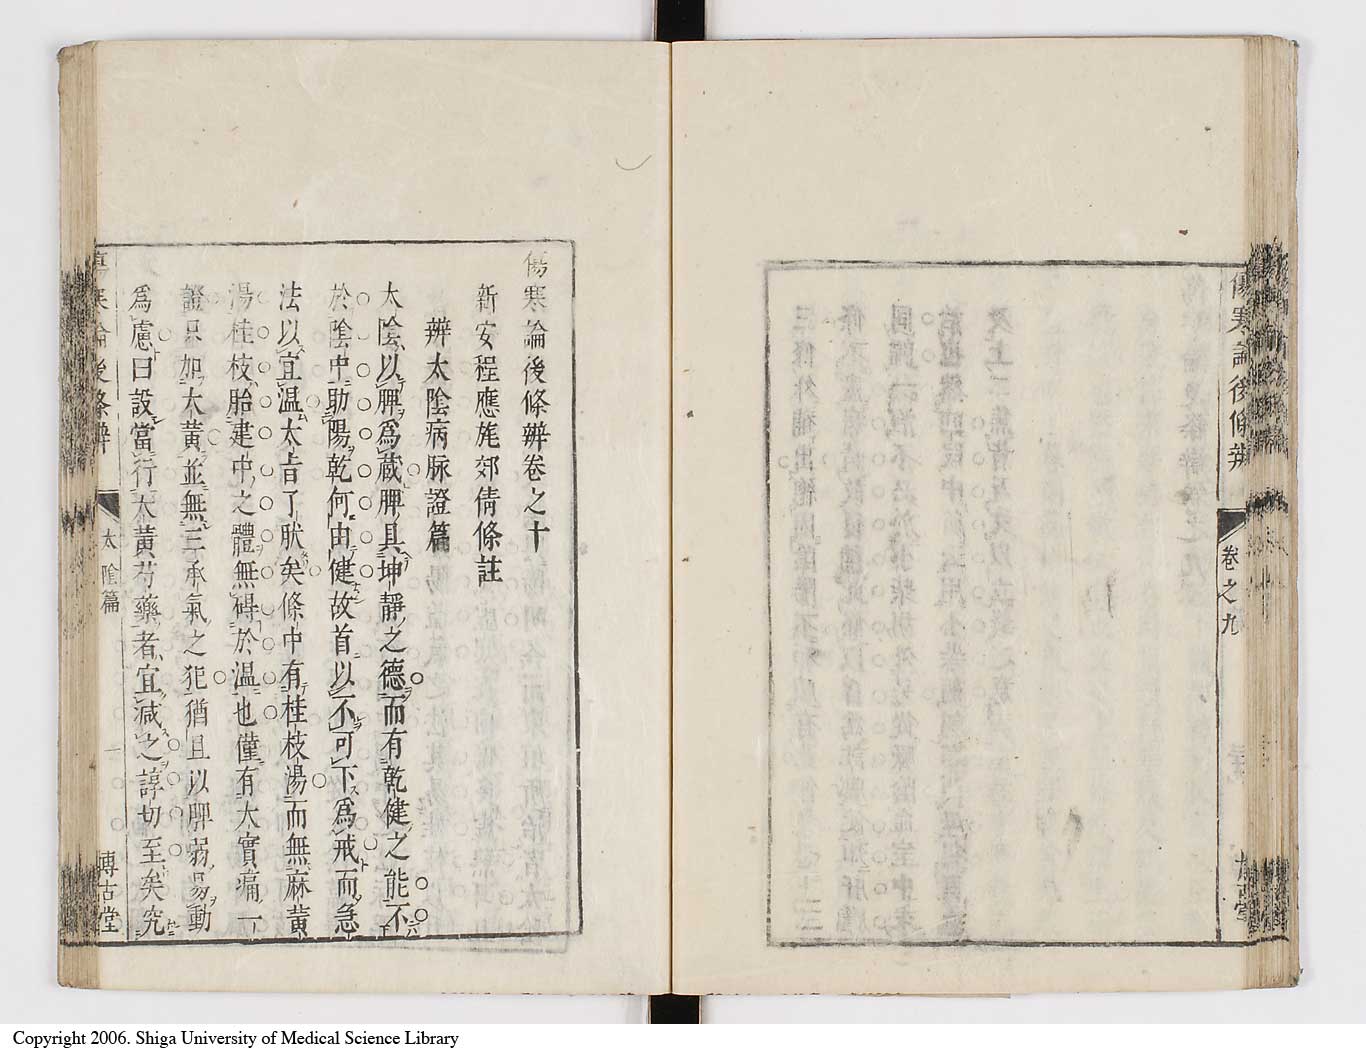 傷寒論後條辨
卷之九
傷寒論後條辨卷之十
新安程應旄郊倩條註
辨太陰病脉證篇
太陰以脾爲藏脾具坤靜之德而有乾健之能不
於陰中助陽乾何由健故首以不可下爲戒而急
法以宜温太㫖了肰矣條中有桂枝湯而無麻黄
湯桂枝胎建中之體無碍於温也僅有大實痛一
證只加大黄並無三承氣之犯猶且以脾弱易動
爲慮曰設當行大黄芍藥者宜減之諄切至矣究
寒論後條辨
太陰篇
一
博古堂
Copyright 2006. Shiga University of Medical Science Library